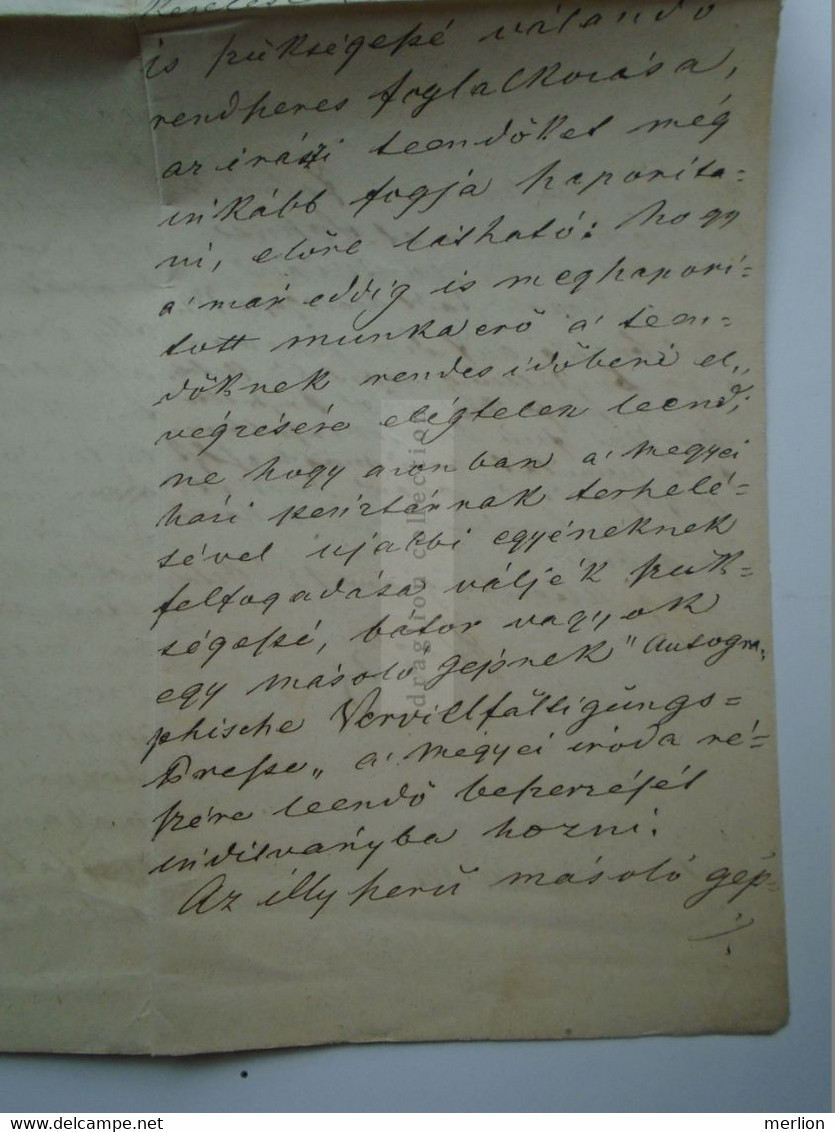 is szükségessé válandó
rendszeres foglalkozása,
az irászi teendőket még
inkább fogja szaporíta=
ni, előre látható: hogy
a' már eddig is megszaporí=
tott munkaerő a' teen=
dőknek rendes időbeni el„
végzésére elégtelen leend;
ne hogy azonban a' megyei
házi pénztárnak terhelé=
sével ujabbi egyéneknek
felfogadása váljék szük=
ségessé, bátor vagyok
egy másoló gépnek "Autogra„
phische Vervielfältigungs=
Presse„ a' megyei iroda ré=
szére leendő beszerzését
indítványba hozni.
Az illyszerű másoló gép=
dragffou collection
www.delcampe.net
merlion